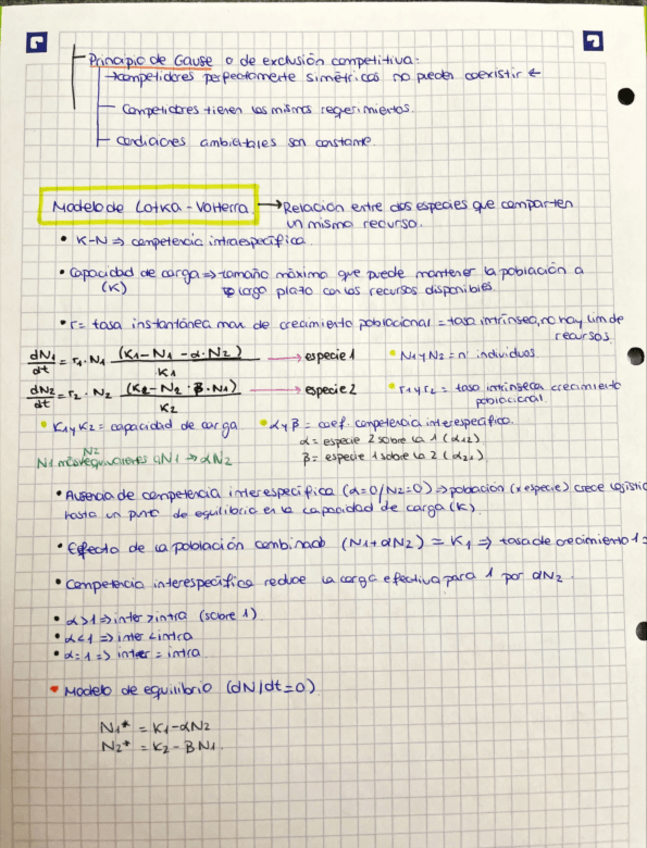 Principio de Gause o de exclusión competitiva:
→competidores perfectamente simétricos no pueden coexistir ←
Competidores tienen los mismos requerimientos.
Condiciones ambientales son constante
Modelo de Lotka - Volterra → Relación entre dos especies que comparten
un mismo recurso.
• K-N ⇒ competencia intraespecífica
• Capacidad de carga ⇒ tamaño máximo que puede mantener la población a
(K) largo plazo con los recursos disponibles
• r = tasa instantánea max de crecimiento poblacional = tasa intrínsea, no hay lim de
recursos.
dN1/dt = r1 · N1 (K1 - N1 - α · N2)/K1 → especie 1 • N1 y N2 = nº individuos
dN2/dt = r2 · N2 (K2 - N2 · β · N1)/K2 → especie 2 • r1 y r2 = tasa intrínseca crecimiento
poblacional
• K1 y K2 = capacidad de carga • α y β = coef. competencia interespecífica.
α = especie 2 sobre la 1 (α12)
N2
N1 → αN2
β = especie 1 sobre la 2 (α21)
• Ausencia de competencia interespecífica (α=0/N2=0) ⇒ población (x especie) crece logístic
hasta un punto de equilibrio en la capacidad de carga (K).
• Efecto de la población combinado (N1+αN2) = K1 ⇒ tasa de crecimiento 1 =
• Competencia interespecífica reduce la carga efectiva para 1 por αN2.
• α>1 ⇒ inter > intra (sobre 1)
• α<1 ⇒ inter < intra
• α=1 ⇒ inter = intra
• Modelo de equilibrio (dN/dt=0)
N1* = K1-αN2
N2* = K2 - βN1.